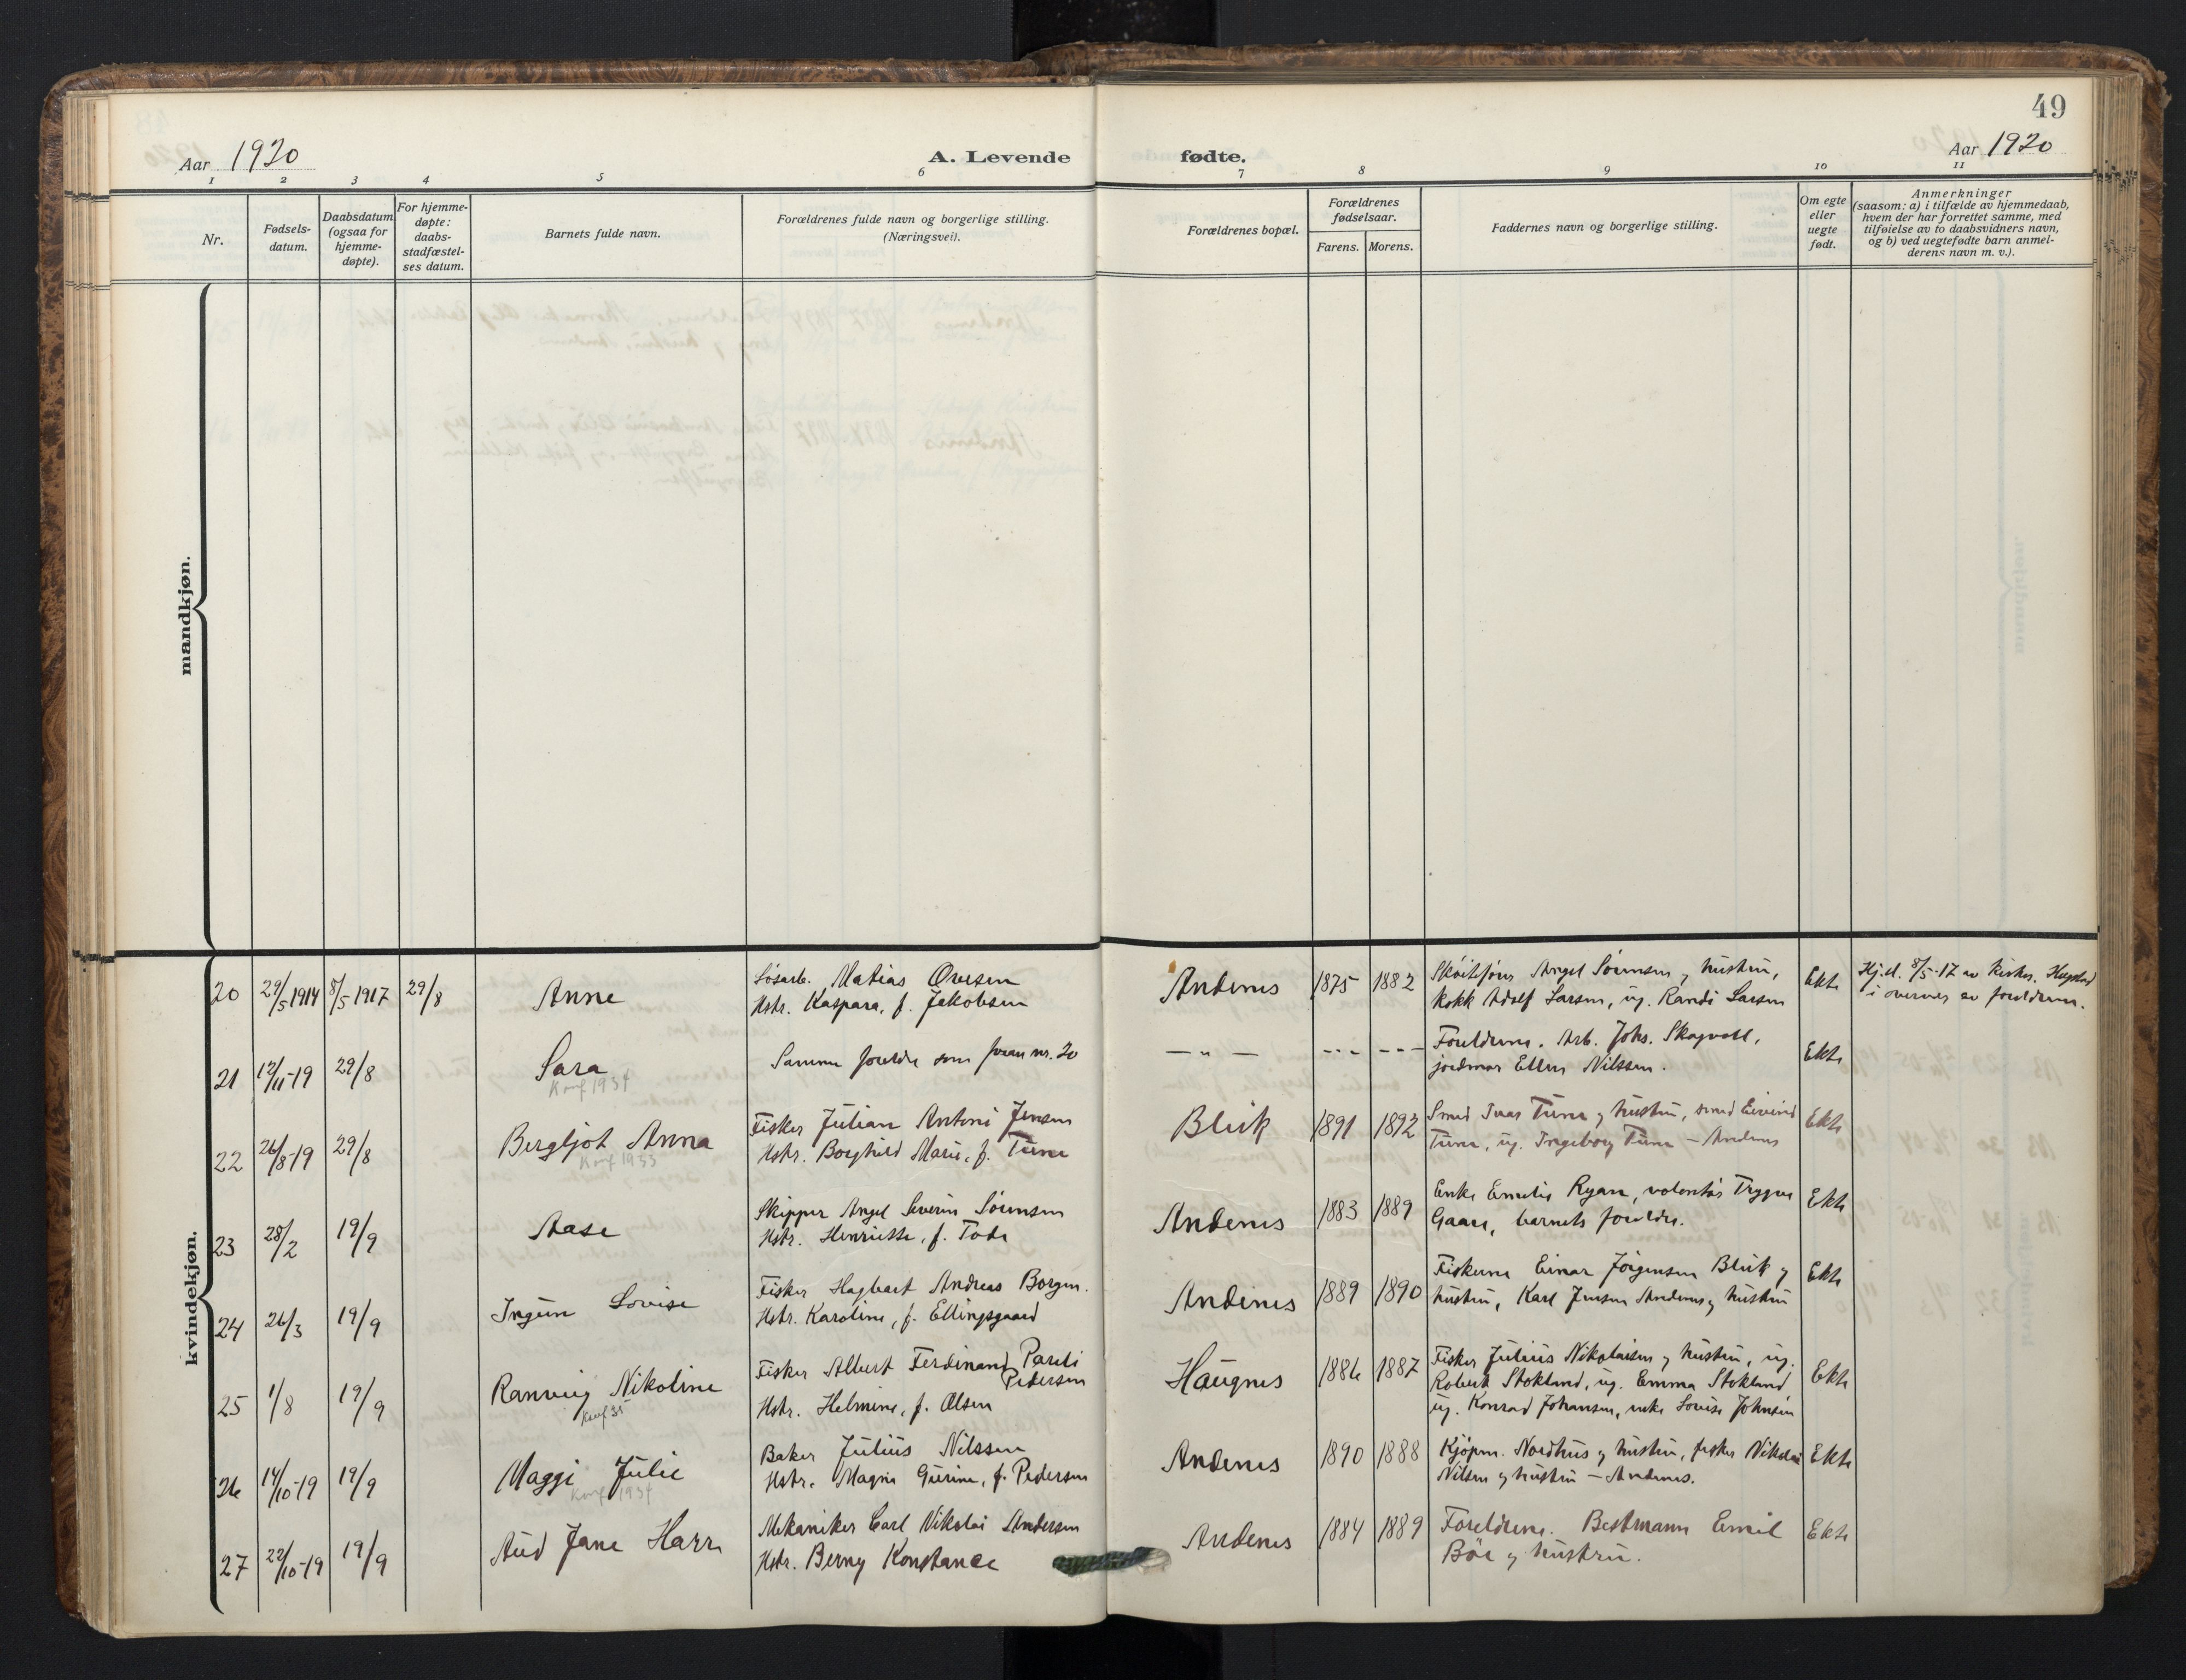 49
Aar 1920
A. Levende
fødte.
Aar 1920
1 2 3 4 5 6 7 8 9 10 11
Nr.
Fødsels-
datum.
Daabsdatum
(ogsaa for
hjemme-
døpte).
For hjemme-
døpte:
daabs-
stadfæstel-
ses datum.
Barnets fulde navn.
Forældrenes fulde navn og borgerlige stilling.
(Næringsvei).
Forældrenes bopæl.
Forældrenes
fødselsaar.
Farens. Morens.
Faddernes navn og borgerlige stilling.
Om egte
eller
uegte
født.
Anmerkninger
(saasom: a) i tilfælde av hjemmedaab,
hvem der har forrettet samme, med
tilføielse av to daabsvidners navn,
og b) ved uegtefødte barn anmel-
derens navn m. v.).
mandkjøn.
kvindekjøn.
20 29/5 1914 8/5 1917 29/8 Anne
Løsarb. Matias Ovesen
Hstr. Kaspara, f. Jakobsen
Andenes 1875 1882
Angel Sørensen, hustru,
kokk Adolf Larsen, ug. Randi Larsen
Ekte
Hj.d. 8/5-17 av
i overvær av foreldrene.
21 12/11-19 29/8 Sara
Konf 1934
Samme foreldre som foran nr. 20
— " — --- ---
Foreldrene. Arb. Johs. Skogvoll,
jordmor Ellen Nilssen.
Ekte
22 26/8-19 29/8 Bergljot Anna
Konf 1933
Fisker Julian Antoni Jensen
Hstr. Borghild Marie, f. Tune
Bleik 1891 1892
Smed Ivar Tune og hustru, smed Eivind
Tune, ug. Ingeborg Tune – Andenes
Ekte
23 28/2 19/9 Aase
Skipper Angel Severin Sørensen
Hstr. Henriette, f. Tode
Andenes 1883 1889
Enke Emelie Ryan, volontør Trygve
Gaare, barnets foreldre.
Ekte
24 26/3 19/9 Ingun Lovise
Fisker Hagbart Andreas Borgen.
Hstr. Karoline, f. Ellingsgaard
Andenes 1889 1890
Fiskerne Einar Jörgensen Bleik og
hustru, Karl Jensen Andenes og hustru
Ekte
25 1/8 19/9 Ranveig Nikoline
Konf 35
Fisker Albert Ferdinand Pareli
Pedersen
Hstr. Helmine, f. Olsen
Haugnes 1886 1887
Fisker Julius Nikolaisen og hustru, ug.
Robert Stokland, ug. Emma Stokland,
ug. Konrad Johansen, enke Lovise Johnsen
Ekte
26 14/10-19 19/9 Maggi Julie
Konf 1934
Baker Julius Nilssen
Hstr. Magna Gurine, f. Pedersen
Andenes 1890 1888
Kjøpm. Nordhus og hustru, fisker Nikolai
Nilsen og hustru – Andenes.
Ekte
27 22/10-19 19/9 Aud Jane Harr
Mekaniker Carl Nikolai Andersen
Hstr. Berny Konstance
Andenes 1884 1889
Foreldrene. Bestmann Emil
Böe og hustru.
Ekte